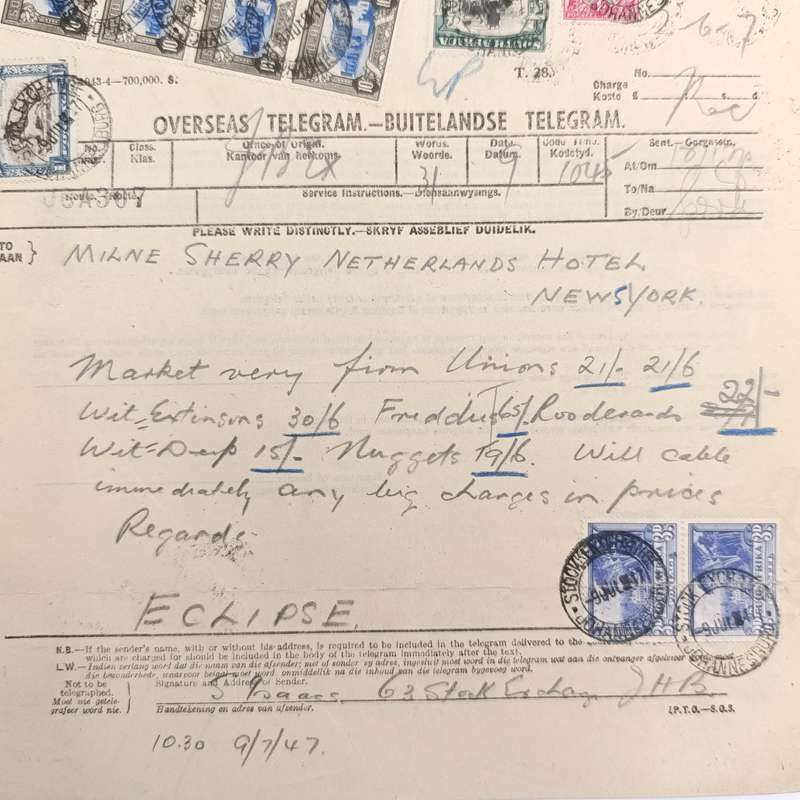 T. 28.
No.
Charge
Koste £ s. d.
6-7
OVERSEAS TELEGRAM.—BUITELANDSE TELEGRAM.
No. Class. Office of Origin. Words. Date. Code Time. Sent.—Gesein.
Klas. Kantoor van herkoms. Woorde. Datum. Kodetyd.
31 9 1045
At/Om
To/Na
By/Deur
Service Instructions.—Diensaanwysings.
JSA307
PLEASE WRITE DISTINCTLY.—SKRYF ASSEBLIEF DUIDELIK.
TO
AAN } MILNE SHERRY NETHERLANDS HOTEL
NEWSYORK.
Market very firm Unions 21/- 21/6
Wit-Extinsons 30/6 Freddies 65/- Rooderands 22/-
Wit-Deep 15/- Nuggets 19/6. Will cable
immediately any big changes in prices
Regards.
ECLIPSE.
STOCK EXCHANGE
9 JUL 47
JOHANNESBURG
N.B.—If the sender's name, with or without his address, is required to be included in the telegram delivered to the
which are charged for should be included in the body of the telegram immediately after the text.
L.W.—Indien verlang word dat die naam van die afsender, met of sonder sy adres, ingesluit moet word in die telegram wat aan die ontvanger afgelewer
die besonderhede, waarvoor betaal moet word onmiddellik na die inhoud van die telegram bygevoeg word.
Not to be
telegraphed.
Moet nie getele-
grafeer word nie.
Signature and Address of Sender.
S Isaacs. 63 Stock Exchange JHB.
Handtekening en adres van afsender.
[P.T.O.—S.O.S.
10.30 9/7/47.